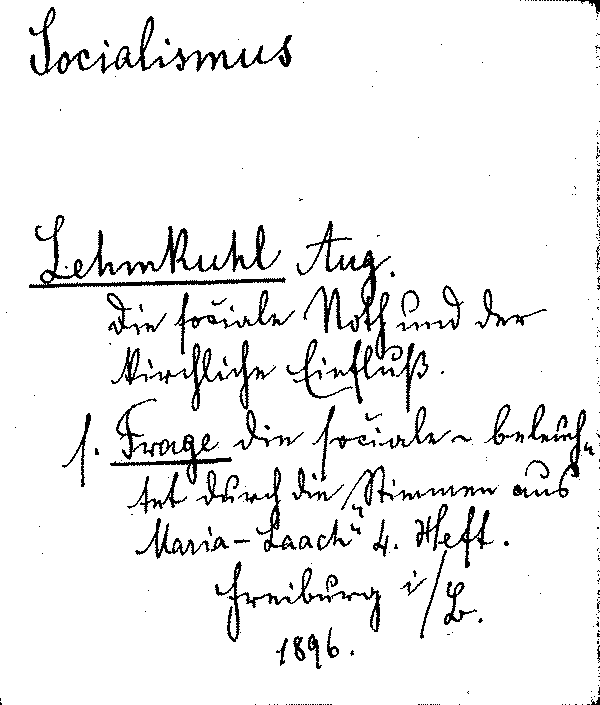 Socialismus
Lehmkuhl Aug.
Die sociale Noth und der
kirchliche Einfluß.
s. Frage die sociale - beleuch-
tet durch die „Stimmen aus
Maria-Laach“ 4. Heft.
Freiburg i/B.
1896.